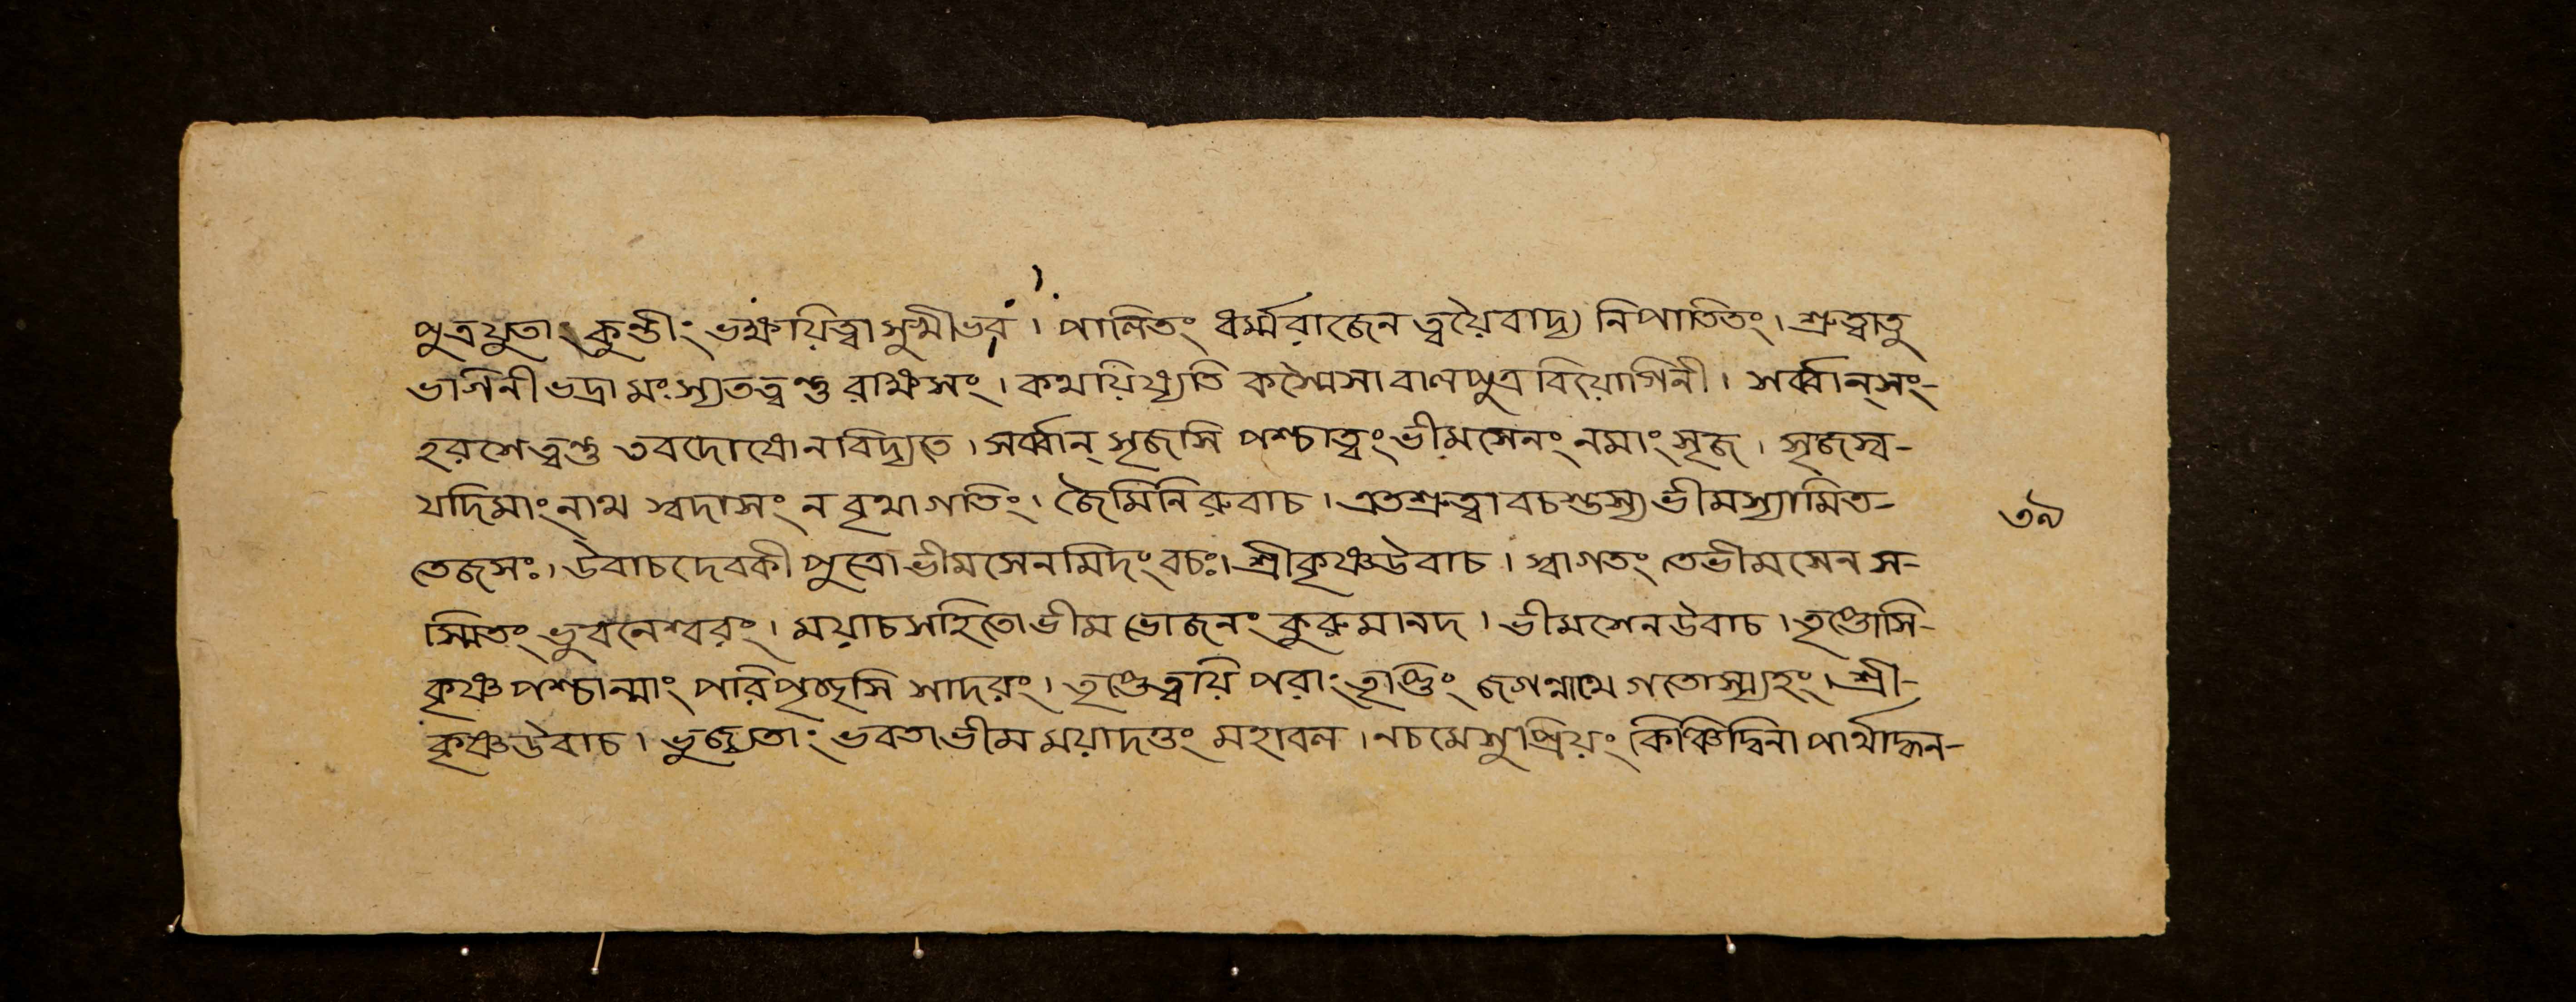 পুত্রযুতাং কুন্তীং ভক্ষয়িত্বা সুখীভব। পালিতং ধর্ম্মরাজেন ত্বয়ৈবাদ্য নিপাতিতং। শ্রুত্বাতু
ভাগিনী ভদ্রা মৎস্যতত্বন্তু রাক্ষসং। কথয়িষ্যতি কস্মৈসা বালপুত্র বিয়োগিনী। সর্ব্বান্সং-
হরশে ত্বন্তু তবদোষোনবিদ্যতে। সর্ব্বান্ সৃজসি পশ্চাত্বং ভীমসেনং নমাং সৃজ। সৃজস্ব-
যদিমাং নাথ স্বদাসং ন বৃথাগতিং। জৈমিনিরুবাচ। এতশ্রুত্বাবচস্তস্য ভীমস্যামিত-
তেজসঃ। উবাচদেবকীপুত্রো ভীমসেনমিদং বচঃ। শ্রীকৃষ্ণউবাচ। স্বাগতং তেভীমসেন স-
স্মিতং ভুবনেশ্বরং। ময়াচসহিতো ভীম ভোজনং কুরুমানদ। ভীমশেনউবাচ। তৃপ্তোসি-
কৃষ্ণ পশ্চান্মাং পরিপৃচ্ছসি সাদরং। তৃপ্তেত্বয়ি পরাং তৃপ্তিং জগন্নাথে গতোস্ম্যহং। শ্রী-
কৃষ্ণউবাচ। ভুজ্যতাং ভবতাভীম ময়াদত্তং মহাবল। নচমেসুপ্রিয়ং কিঞ্চিদ্বিনা পার্থাদ্ধন-
৩৯